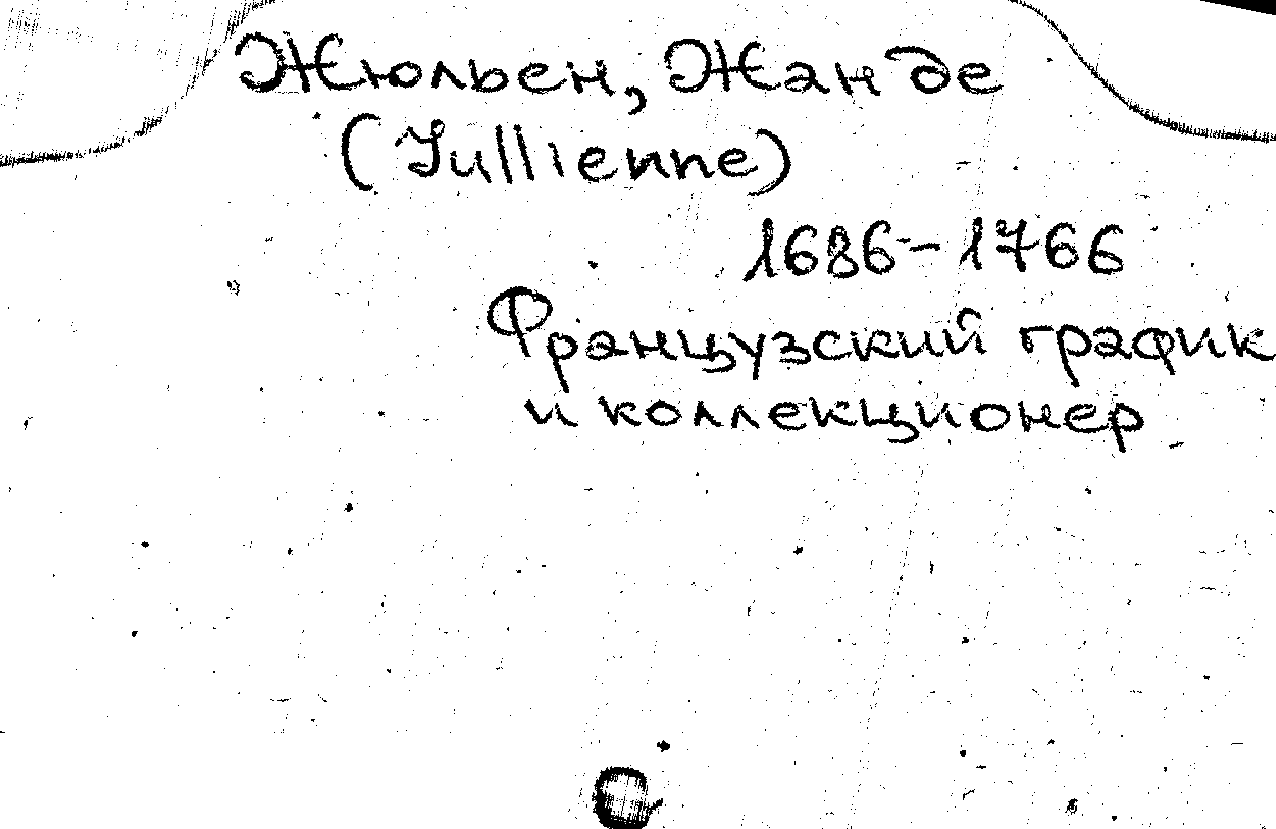 Жюльен, Жан де
(Jullienne)
1686-1766
Французский график
и коллекционер